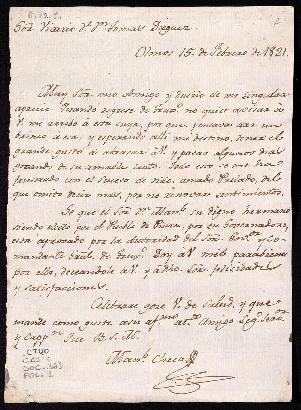 Sōr Vicario Dr. Dn. Tomas Dieguez
Olmos 15. de Febrero de 1821.
Muy Sōr. mio Amigo y dueño de mi singular
aprecio: Quando regresé de Trugo. no quise avisar á
V. mi arrivo á esta suya, por que pensaba dar un
brinco á esa, y esperando alli mi destino, tener el
grande gusto de abrazar á V. y pasar algunos dias
gozando de su amable trato. Todo esto se me ha
frustrado con el suceso de nuestro amado Prelado, del
que omito decir mas, por no renovar sentimientos.
Se que el Sōr. Dr. Manl. su digno hermano
siendo electo por el Pueblo de Piura, por su Governador,
está aprovado por la autoridad del Sōr. Govr. y Co-
mandante Gral. de Trugo. Doy á V. mil parabienes
por ello, deseandole á V. y á dho. Sōr. felicidades
y satisfacciones.
Celebraré goze V. de Salud, y que
mande como guste á su afmo. Amigo Segº. Servr.
y Cappn. Q.e B. S. M.
Manl. Checa
CTUO
DOC. 383
FOL. 1